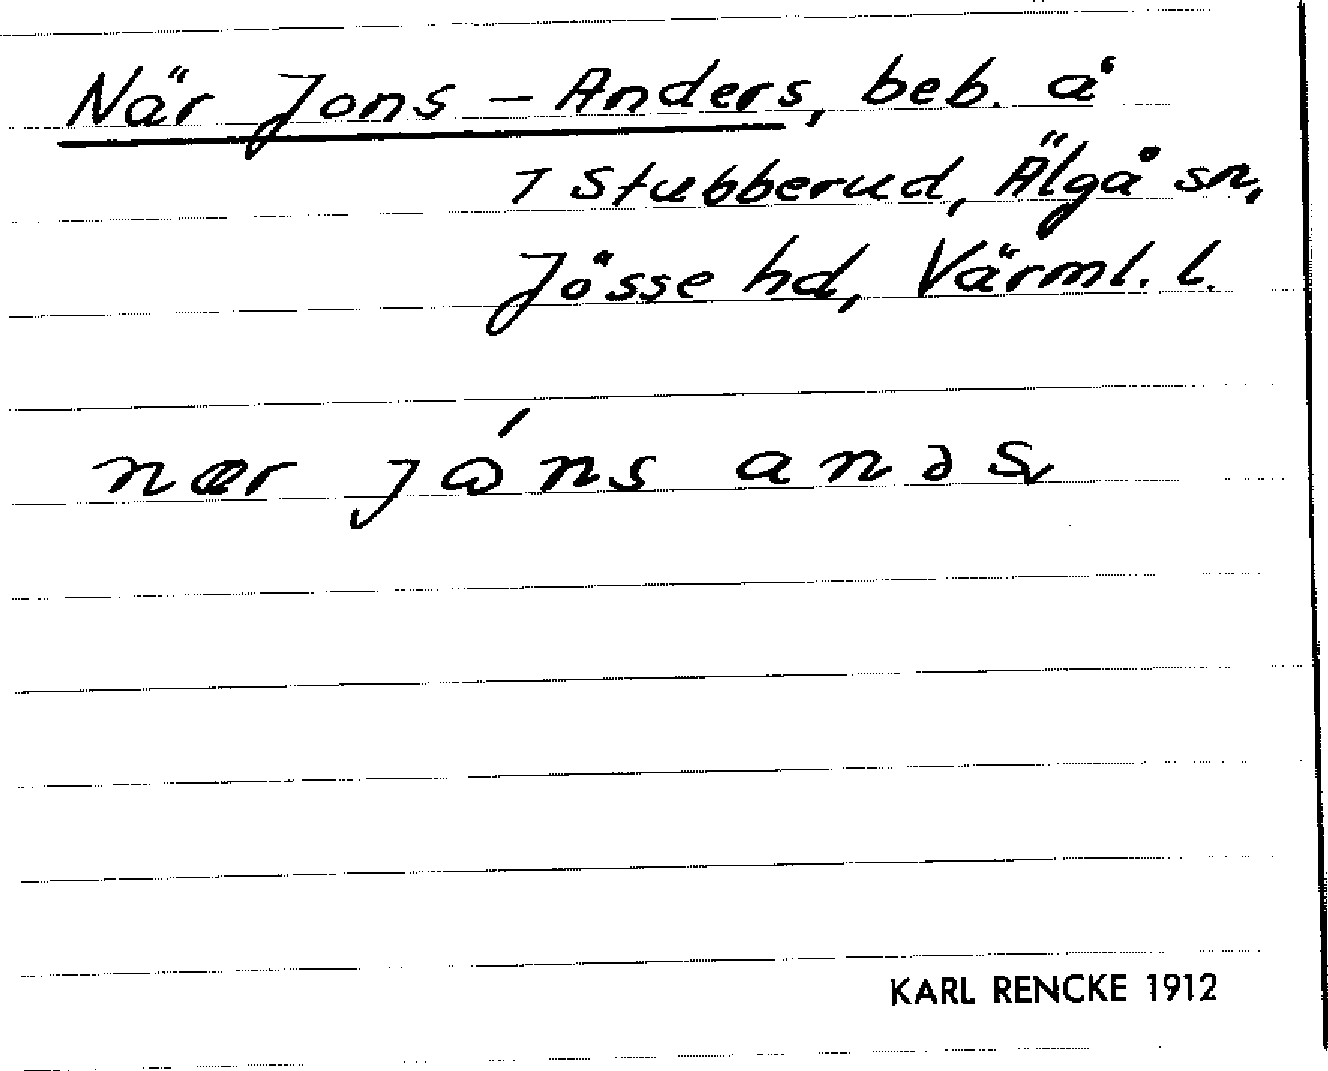 När Jons - Anders, beb. å
1 Stubberud, Älgå sn,
Jösse hd, Värml. l.
nær jóns anəs
KARL RENCKE 1912